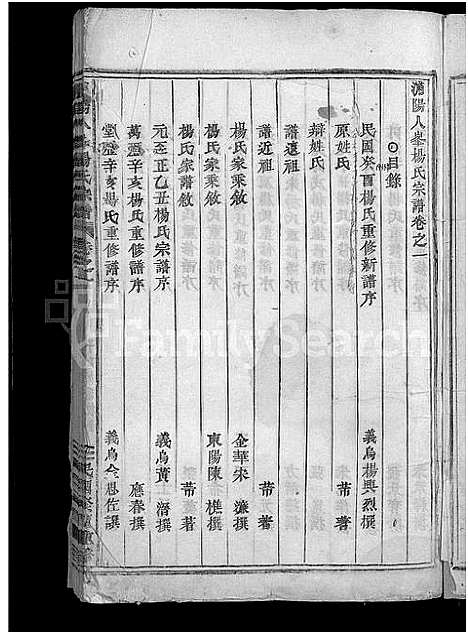 浦陽人峯楊氏宗譜卷之一
目錄
民國癸酉楊氏重修新譜序 義烏楊興烈撰
原姓氏 芾著
辯姓氏
譜遠祖
譜近祖 芾著
楊氏家乘敘 金華宋濂撰
楊氏家乘敘 東陽陳樵撰
楊氏家譜敘 芾著
元至正乙丑楊氏宗譜序 義烏黃溍撰
萬曆辛亥楊氏重修譜序 應春撰
萬曆辛亥楊氏重修譜序 義烏金思佐撰
FamilySearch